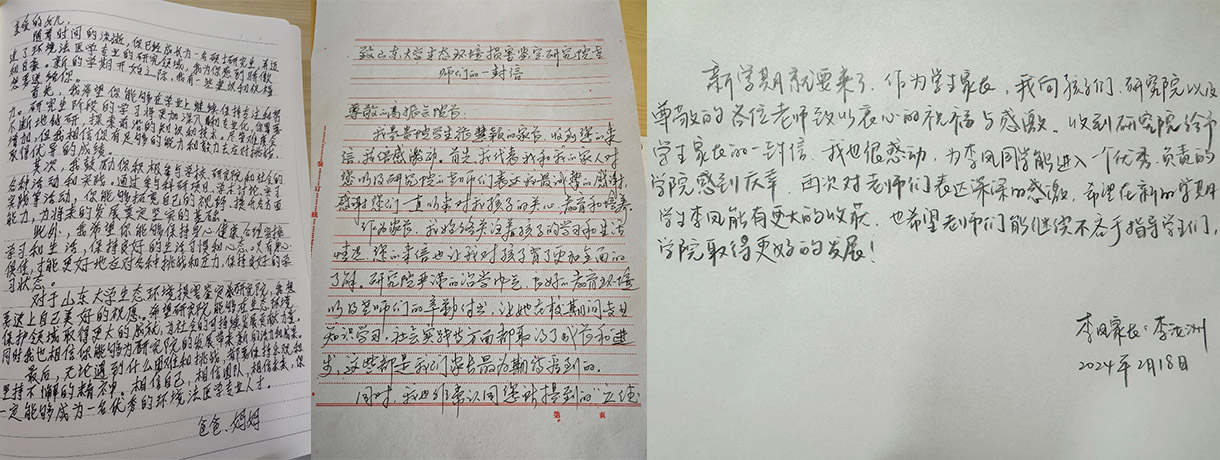 亲爱的女儿,
随着时间的流逝,你已经成长为一名硕士研究生,
进了环境法医学专业的研究领域,我为你感到骄傲
和自豪。新的学期开始之际,我有一些建议和祝福
想要送给你。
首先,我希望你能够在学业上继续保持专注和努
力。研究生阶段的学习将更加深入和专业化,你需要
不断地钻研、探索前沿的知识和技术。
增加,但我相信你有足够的能力和毅力去应对挑战,
取得优异的成绩。
其次,我鼓励你积极参与学校、研究院和社会的
各种活动和实践。通过参与科研项目、学术讨论、学习
实践等活动,你能够拓宽自己的视野,提升综合
能力,为将来的发展奠定坚实的基础。
此外,我希望你能够保持身心健康,合理安排
学习和生活,保持良好的生活习惯和心态。
才能更好地应对各种挑战和压力,保持良好的学
习状态。
对于山东大学生态环境损害鉴定研究院,我想
要送上自己美好的祝愿。希望研究院能够在生态环境
保护领域取得更大的成就,为社会的可持续发展贡献力量。
同时我也相信你能够为研究院的发展带来新的活力和成果。
最后,无论遇到什么困难和挑战,都要保持乐观和
坚持不懈的精神。相信自己,相信团队,相信未来,你
一定能够成为一名优秀的环境法医学专业人才。
爸爸、妈妈
致山东大学生态环境损害鉴定研究院老
师们的一封信
尊敬的高振会院长:
我是贵院学生张慧颖的家长,收到您的来
信,我倍感激动。首先,我代表我和我的家人对
您以及研究院的老师们表达我最诚挚的感谢,
感谢您们一直以来对我孩子的关心、教育和培养。
作为家长,我始终关注着孩子的学习和生活
情况,您的来信也让我对孩子有了更加全面的
了解。研究院严谨的治学风气、良好的教育环境
以及老师们的辛勤付出,让她在校期间专业
知识学习、社会实践等方面都取得了成长和进
步,这些都是我们家长最为期待看到的。
同时,我也非常认同您所提到的“立德
第 页
新学期就要来了,作为学生家长,我向孩子们、研究院以及
尊敬的各位老师致以衷心的祝福与感激。收到研究院给予
学生家长的一封信,我也很感动,为李凤同学能进入一个优秀、负责的
学院感到庆幸,再次对老师们表达深深的感激,希望在新的学期
学生李凤能有更大的收获,也希望老师们能继续不吝于指导学生们,
学院取得更好的发展!
李凤家长:李洪洲
2024年2月18日